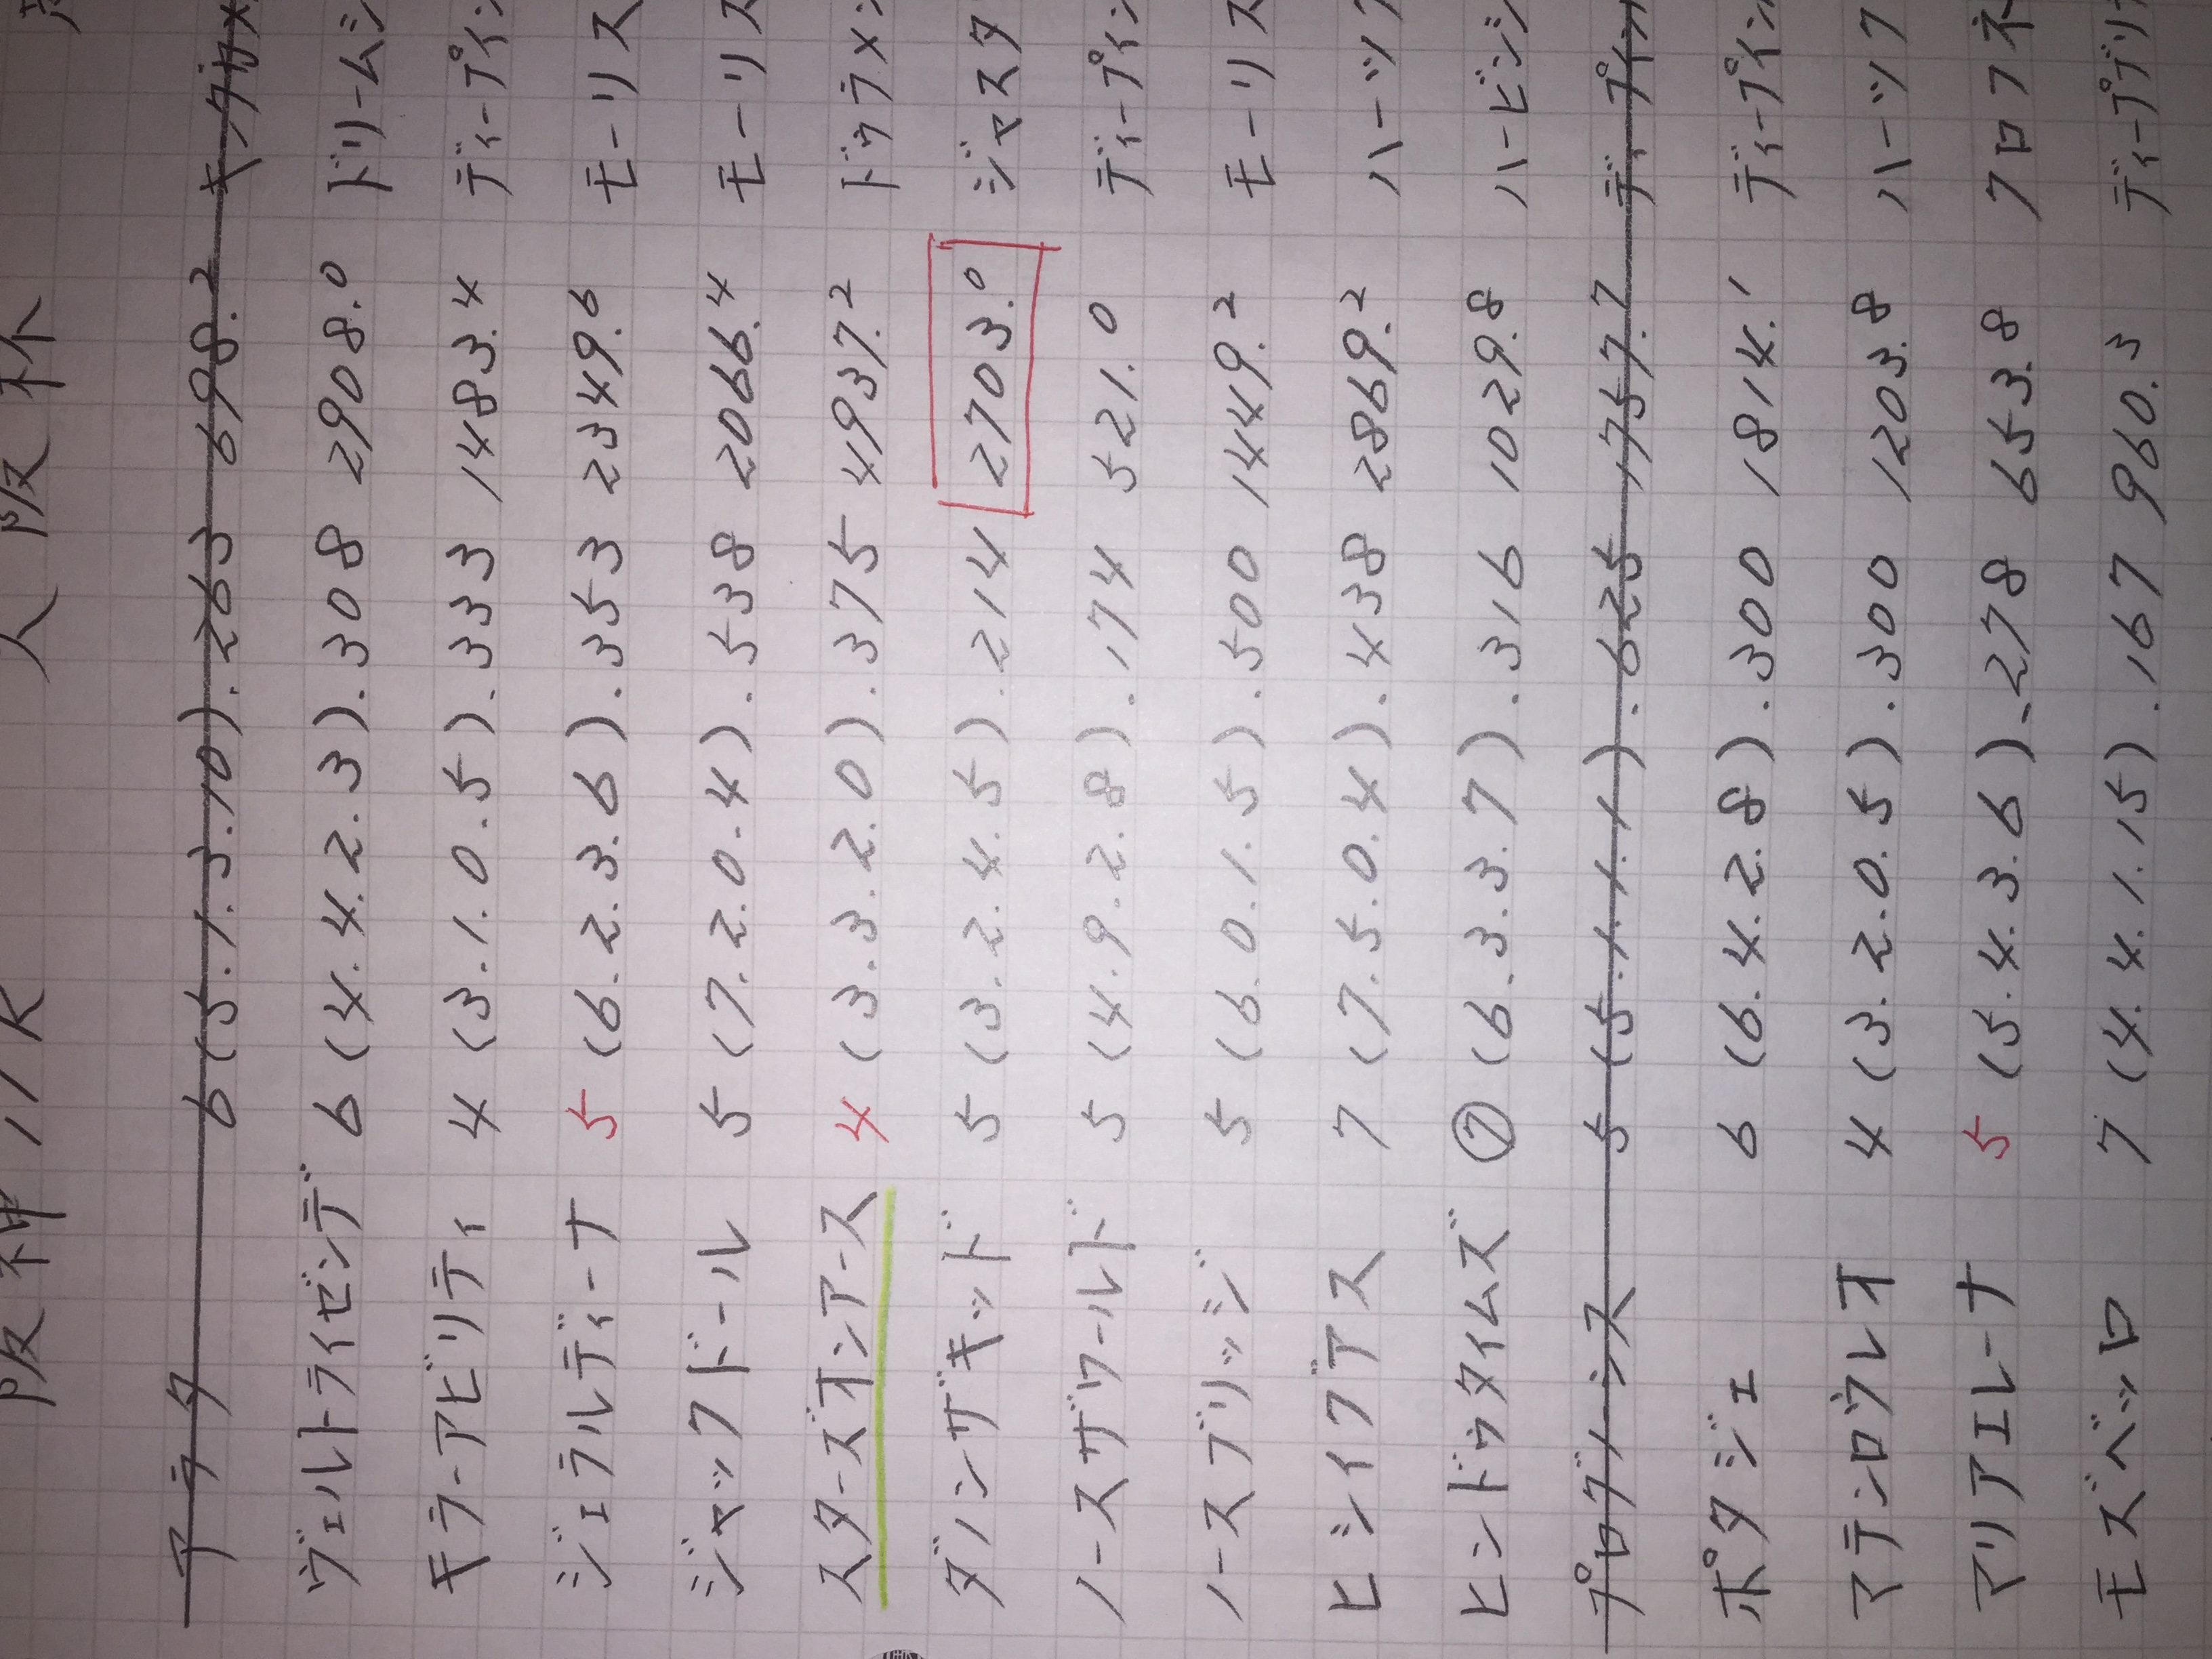 阪神11R 大阪杯
アラタ 6 (5.1.3.10).263 698.2 キングカメ
ヴェルトライゼンデ 6 (4.4.2.3).308 2908.0 ドリームジ
キラーアビリティ 4 (3.1.0.5).333 1483.4 ディープイン
ジェラルディーナ 5 (6.2.3.6).353 2349.6 モーリス
ジャックドール 5 (7.2.0.4).538 2066.4 モーリス
スターズオンアース 4 (3.3.2.0).375 4937.2 ドゥラメン
ダノンザキッド 5 (3.2.4.5).214 2703.0 ジャスタ
ノースザワールド 5 (4.9.2.8).174 521.0 ディープイン
ノースブリッジ 5 (6.0.1.5).500 1449.2 モーリス
ヒシイグアス 7 (7.5.0.4).438 2869.2 ハーツク
ヒンドゥタイムズ ⑦ (6.3.3.7).316 1029.8 ハービンジ
プログノーシス 5 (5.1.1.1).625 1757.7 ディープイン
ポタジェ 6 (6.4.2.8).300 1814.1 ディープイン
マテンロウレオ 4 (3.2.0.5).300 1203.8 ハーツク
マリアエレーナ 5 (5.4.3.6).278 653.8 クロフネ
モズベッロ 7 (4.4.1.15).167 960.3 ディープブリ